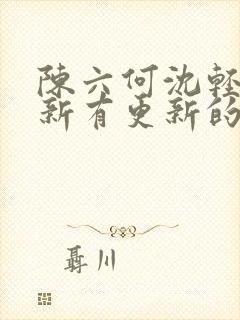 陳六何沈輕
新有更新的
聶川